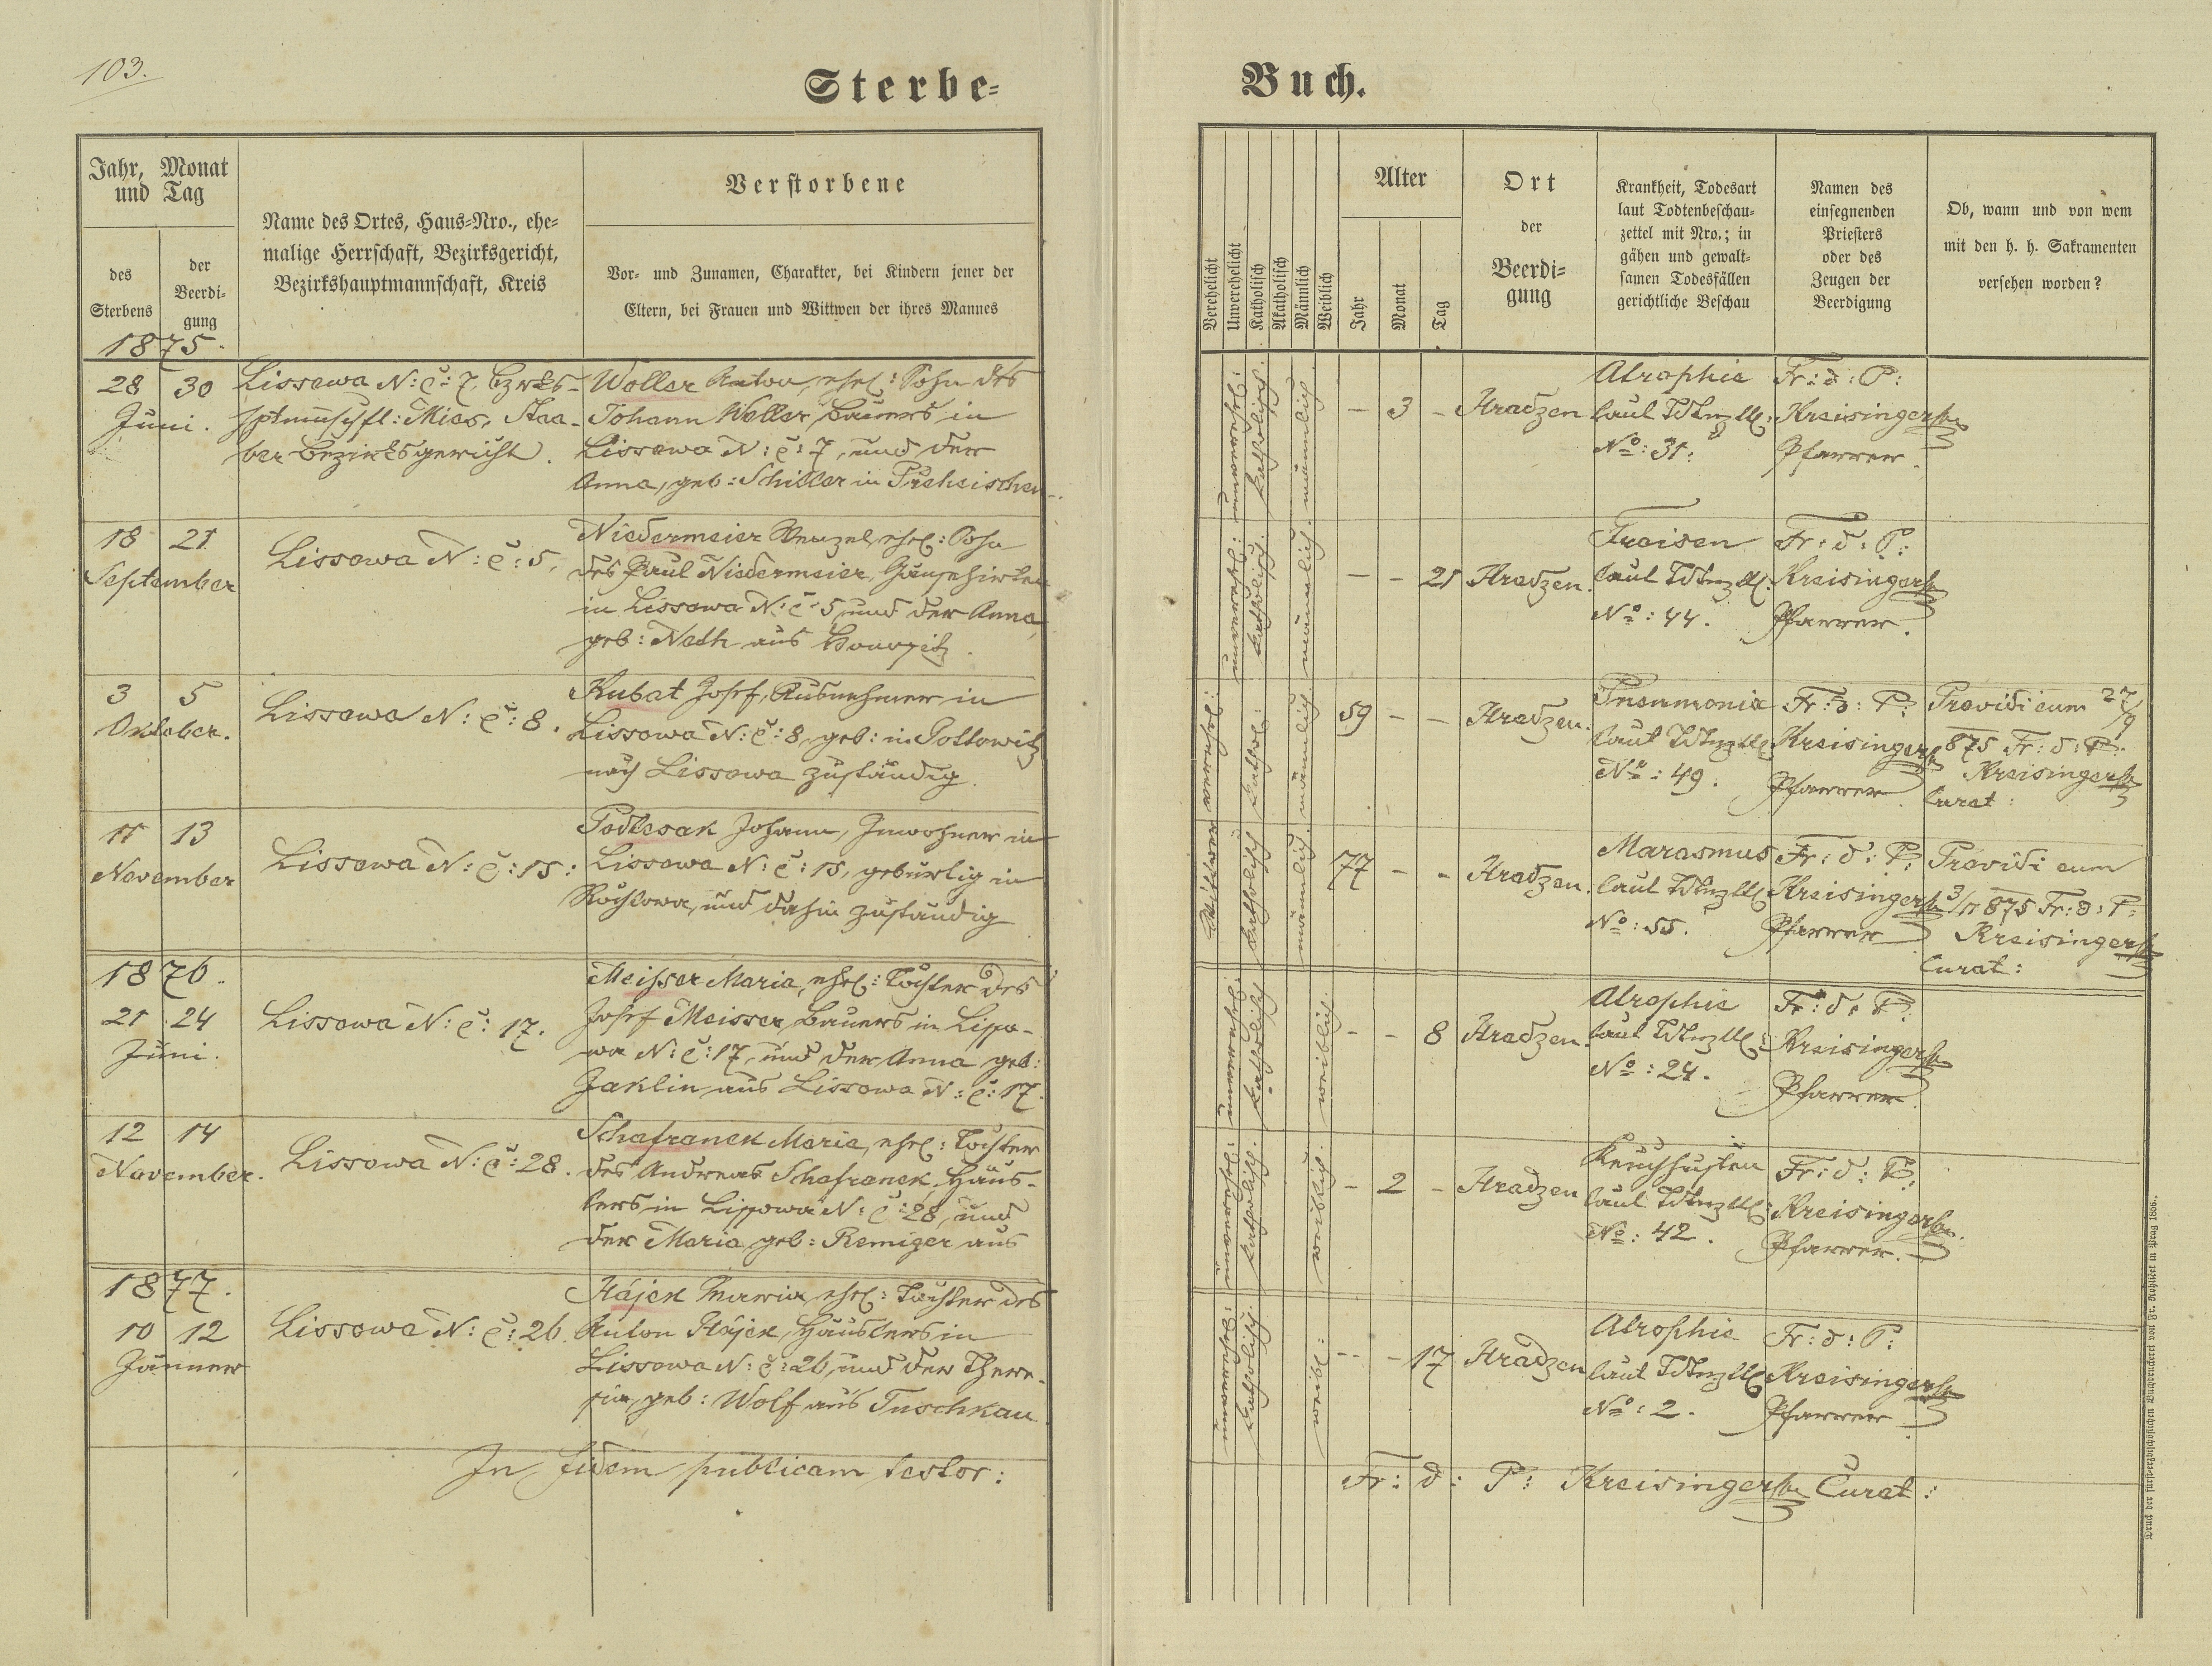 103.
Sterbe=
Jahr, Monat
und Tag
des
Sterbens
der
Beerdi=
gung
Name des Ortes, Haus=Nro., ehe=
malige Herrschaft, Bezirksgericht,
Bezirkshauptmannschaft, Kreis
Verstorbene
Vor= und Zunamen, Charakter, bei Kindern jener der
Eltern, bei Frauen und Wittwen der ihres Mannes
1875.
28 30
Juni.
Lissowa N: č: 7, Bzrks-
hptmnschft: Mies, Staa-
ber Bezirksgericht.
Woller Anton, ehel: Sohn des
Johann Woller, Bauers in
Lissowa N: č: 7, und der
Anna, geb: Schiller in
18 21
September
Lissowa N: č: 5.
Niedermeier Wenzel, ehel: Sohn
des Paul Niedermeier, Gänsehirten
in Lissowa N: č: 5, und der Anna,
geb: Neth aus
3 5
Oktober.
Lissowa N: č: 8.
Kubat Josef, Ausnehmer in
Lissowa N: č: 8, geb: in Pollowitz
nach Lissowa zuständig.
11 13
November
Lissowa N: č: 15:
Podlesak Johann, Inwohner in
Lissowa N: č: 15, gebürtig in
Rochlowa, und dahin zuständig
1876.
21 24
Juni.
Lissowa N: č: 17.
Meisser Maria, ehel: Tochter des
Josef Meisser, Bauers in Lisso-
wa N: č: 17, und der Anna geb:
Jaklin aus Lissowa N: č: 17.
12 14
November.
Lissowa N: č: 28.
Schafranek Maria, ehel: Tochter
des Andreas Schafranek, Häus-
lers in Lissowa N: č: 28, und
der Maria, geb: Remiger aus
1877.
10 12
Jänner
Lissowa N: č: 26.
Hájek Maria, ehel: Tochter des
Anton Hájek, Häuslers in
Lissowa N: č: 26, und der There-
sia, geb: Wolf aus Tuschkau
In fidem publicam testor:
Buch.
Verehelicht
Unverehelicht
Katholisch
Akatholisch
Männlich
Weiblich
Alter
Jahr
Monat
Tag
Ort
der
Beerdi=
gung
Krankheit, Todesart
laut Todtenbeschau=
zettel mit Nro.; in
gähen und gewalt=
samen Todesfällen
gerichtliche Beschau
Namen des
einsegnenden
Priesters
oder des
Zeugen der
Beerdigung
Ob, wann und von wem
mit den h. h. Sakramenten
versehen worden?
unverehel: katholisch. männlich.
– 3 – Hradzen
Atrophie
laut Tdtnzttl:
No: 31:
Fr: d: P:
Kreisinger
Pfarrer.
unverehel: katholisch. männlich.
– – 21 Hradzen.
Fraisen
laut Tdtnzttl:
No: 44.
Fr: d: P:
Kreisinger
Pfarrer.
Wittwer kathol: männlich
59 – – Hradzen.
Pneumonia
laut Tdtnzttl:
No: 49.
Fr: d: P:
Kreisinger
Pfarrer
Providi eum 27/9
875 Fr: d: P:
Kreisinger
Curat:
verehel: katholisch männlich.
77 – – Hradzen.
Marasmus
laut Tdtnzttl:
No: 55.
Fr: d: P:
Kreisinger
Pfarrer
Providi eum
3/11 875 Fr: d: P:
Kreisinger
Curat:
unverehel: katholisch weiblich.
– – 8 Hradzen.
Atrophie
laut Tdtnzttl:
No: 24.
Fr: d: P:
Kreisinger
Pfarrer.
unverehel: katholisch. weiblich.
– 2 – Hradzen
Keuchhusten
laut Tdtnzttl:
No: 42.
Fr: d: P:
Kreisinger
Pfarrer.
unverehel: katholisch. weibl:
– – 17 Hradzen
Atrophie
laut Tdtnzttl:
No: 2.
Fr: d: P:
Kreisinger
Pfarrer.
Fr: d: P: Kreisinger Curat: